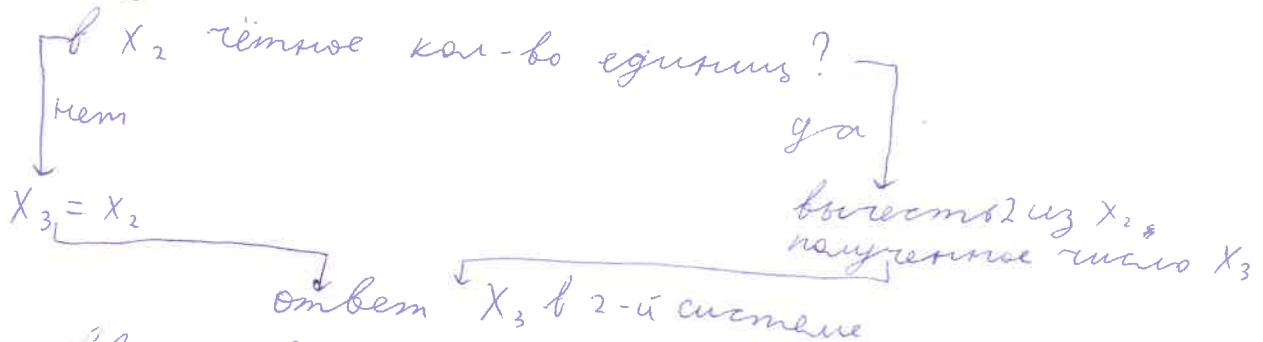 в X₂ чётное кол-во единиц?
нет
да
X₃ = X₂
вычесть 2 из X₂,
полученное число X₃
ответ X₃ в 2-й системе